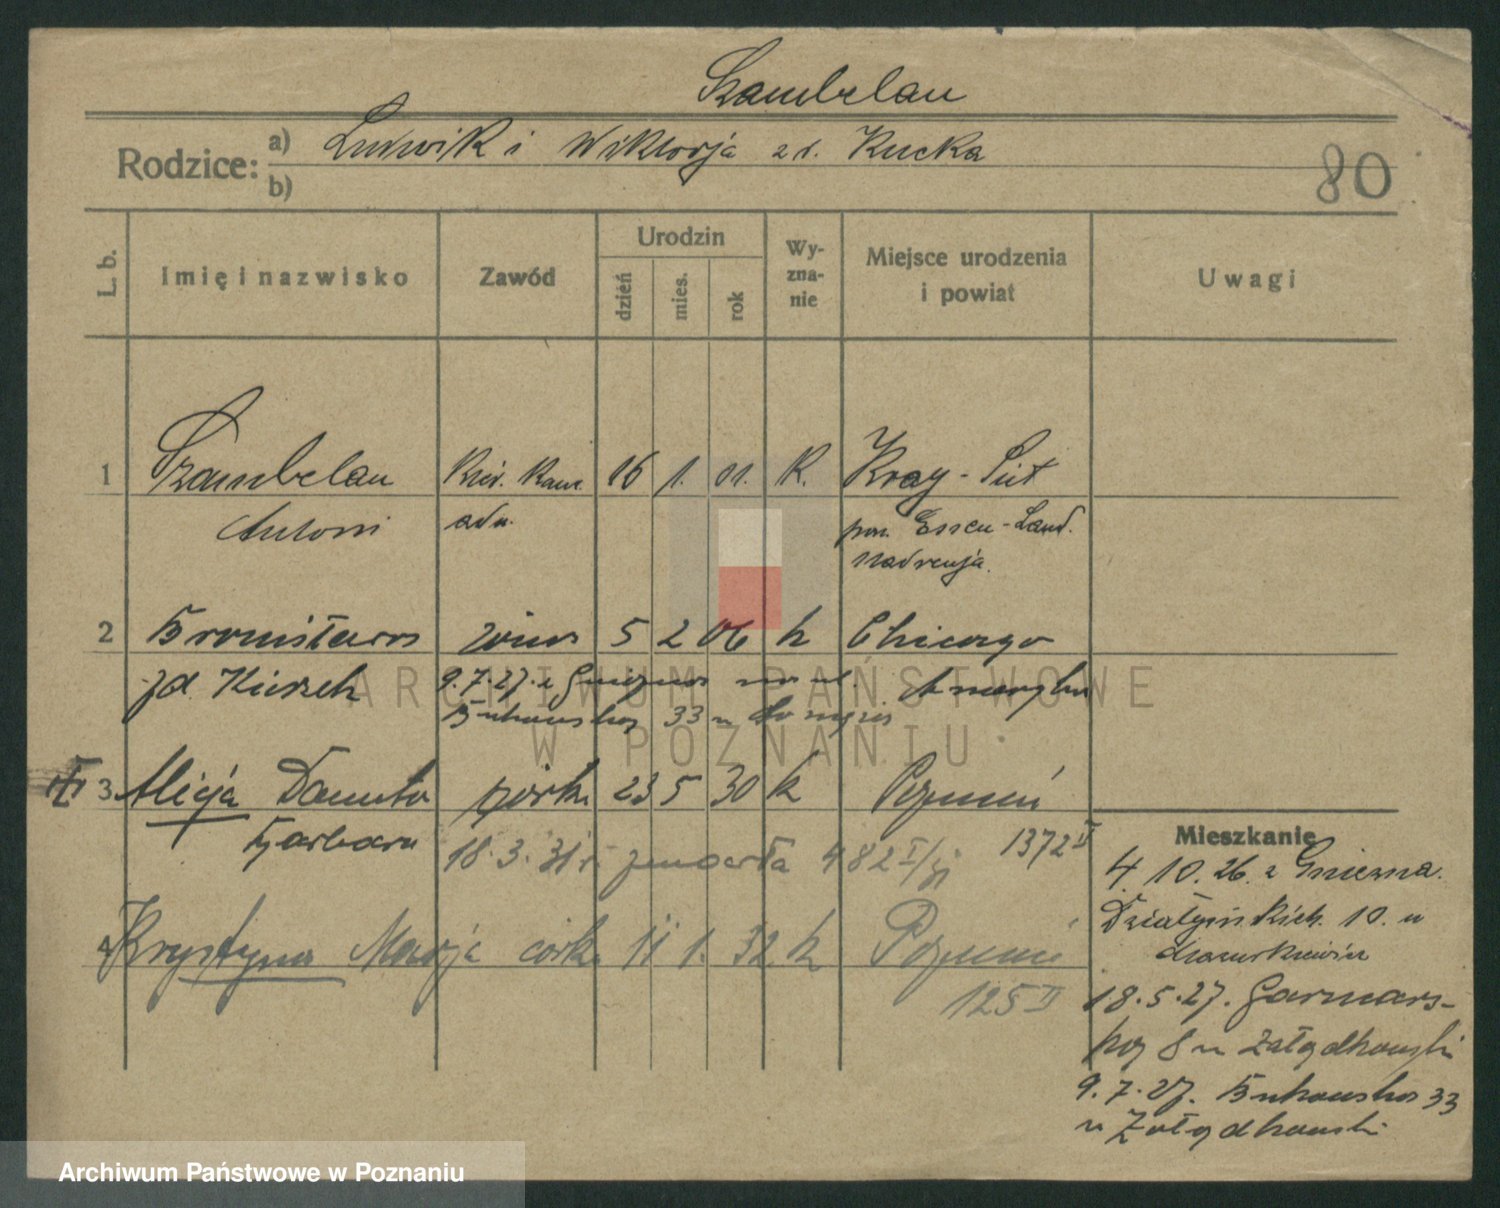 Szambelan
Rodzice: a) Ludwik i Wiktorja z d. Kucka
b)
80
L. b. Imię i nazwisko Zawód Urodzin dzień mies. rok Wyznanie Miejsce urodzenia i powiat Uwagi
1 Szambelan Kier. Kanc. 16 1. 01. K. Kray-
Antoni adw. pow. Essen-Land.
Nadrenja.
2 Bronisława żona 5 2 06 k Chicago
zd. Kierzek 9.7.27. z Gniezna na ul. Ameryka
Bukowska 33 u
3 Alicja Danuta córka 23 5 30 k Poznań
Barbara 1372 II
18.3.31 r. zmarła 482 I/31
4 Krystyna Marja córka 11 1. 32 k Poznań
125 II
Mieszkanie
4. 10. 26. z Gniezna.
Działyńskich. 10. u
18.5.27. Garncars-
ka 8 u
9.7.27. Bukowska 33
u
ARCHIWUM PAŃSTWOWE
W POZNANIU
Archiwum Państwowe w Poznaniu